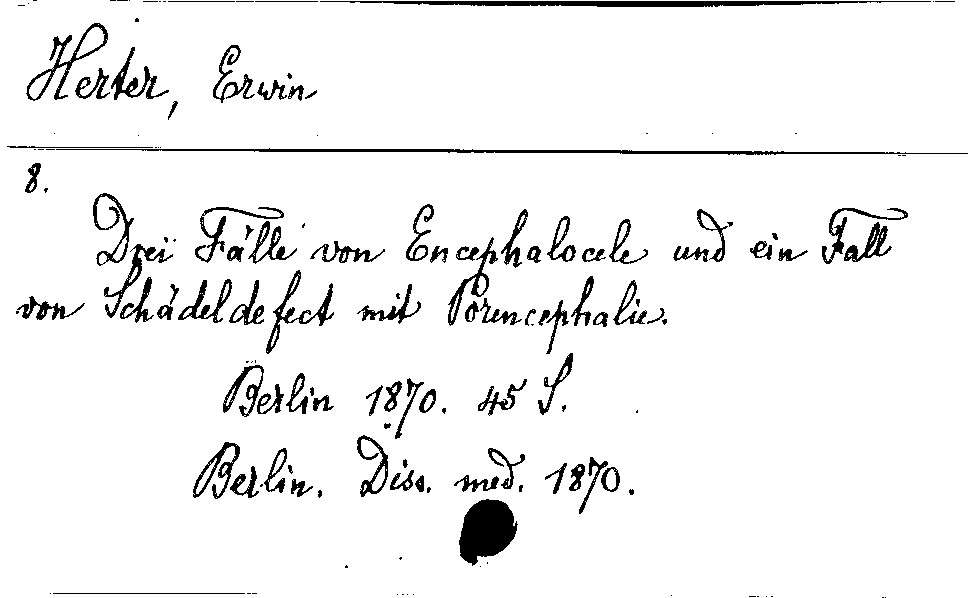 Herter, Erwin
8.
Drei Fälle von Encephalocele und ein Fall
von Schädeldefect mit Porencephalie.
Berlin 1870. 45 S.
Berlin. Diss. med. 1870.